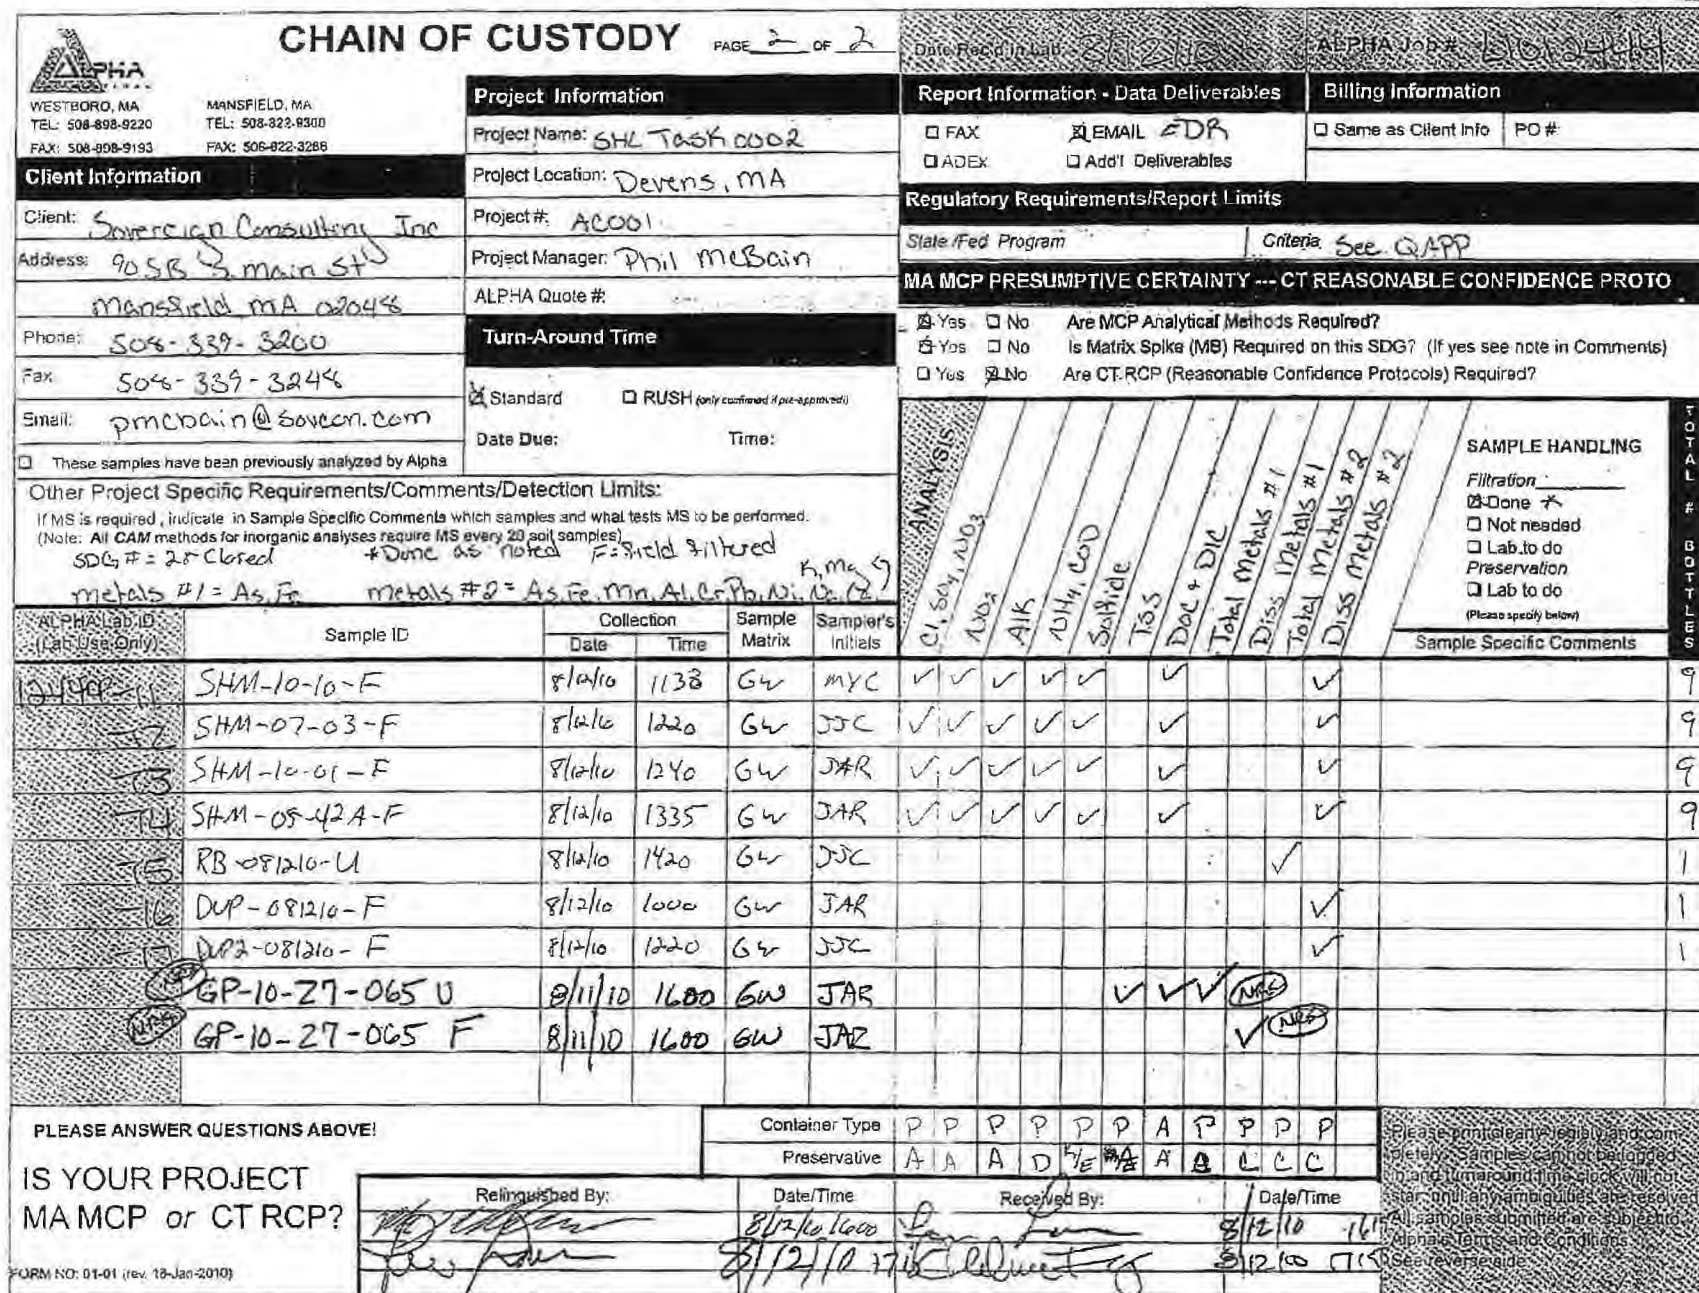 CHAIN OF CUSTODY PAGE 2 OF 2
Date Rec'd in Lab: 8/12/10 ALPHA Job #: L1012444
ALPHA
WESTBORO, MA MANSFIELD, MA
TEL: 508-898-9220 TEL: 508-822-9300
FAX: 508-898-9193 FAX: 508-822-3288
Client Information
Client: Sovereign Consulting Inc
Address: 905B S. Main St
Mansfield MA 02048
Phone: 508-339-3200
Fax 508-339-3248
Email: pmcbain@sovcon.com
☐ These samples have been previously analyzed by Alpha
Project Information
Project Name: SHL Task 0002
Project Location: Devens, MA
Project #: AC001
Project Manager: Phil McBain
ALPHA Quote #:
Turn-Around Time
☒ Standard ☐ RUSH (only confirmed if pre-approved!)
Date Due: Time:
Report Information - Data Deliverables
☐ FAX ☒ EMAIL EDR
☐ ADEX ☐ Add'l Deliverables
Billing Information
☐ Same as Client Info PO #:
Regulatory Requirements/Report Limits
State /Fed Program Criteria See QAPP
MA MCP PRESUMPTIVE CERTAINTY --- CT REASONABLE CONFIDENCE PROTO
☒ Yes ☐ No Are MCP Analytical Methods Required?
☒ Yes ☐ No Is Matrix Spike (MS) Required on this SDG? (If yes see note in Comments)
☐ Yes ☒ No Are CT RCP (Reasonable Confidence Protocols) Required?
Other Project Specific Requirements/Comments/Detection Limits:
If MS is required , indicate in Sample Specific Comments which samples and what tests MS to be performed.
(Note: All CAM methods for inorganic analyses require MS every 20 soil samples)
SDG # = 28 Closed *Done as noted F=Field Filtered
metals #1 = As, Fe metals #2 = As, Fe, Mn, Al, Cr, Pb, Ni, Na, Ca, K, Mg
ANALYSIS
Cl, SO4, NO3
NO2
Alk
NH4, COD
Sulfide
TSS
DOC + DIC
Total Metals #1
Diss Metals #1
Total Metals #2
Diss Metals #2
SAMPLE HANDLING
Filtration
☒ Done *
☐ Not needed
☐ Lab to do
Preservation
☐ Lab to do
(Please specify below)
TOTAL # BOTTLES
ALPHA Lab ID (Lab Use Only) Sample ID Collection Date Time Sample Matrix Sampler's Initials Sample Specific Comments
12444-11 SHM-10-10-F 8/12/10 1138 GW MYC ✓ ✓ ✓ ✓ ✓ ✓ ✓ 9
12 SHM-07-03-F 8/12/10 1220 GW JJC ✓ ✓ ✓ ✓ ✓ ✓ ✓ 9
13 SHM-10-01-F 8/12/10 1240 GW JAR ✓ ✓ ✓ ✓ ✓ ✓ ✓ 9
14 SHM-05-42A-F 8/12/10 1335 GW JAR ✓ ✓ ✓ ✓ ✓ ✓ ✓ 9
15 RB-081210-U 8/12/10 1420 GW JJC ✓ 1
16 DUP-081210-F 8/12/10 1000 GW JAR ✓ 1
17 DUP2-081210-F 8/12/10 1220 GW JJC ✓ 1
GP-10-27-065 U 8/11/10 1600 GW JAR ✓ ✓ ✓ NRS
NRS GP-10-27-065 F 8/11/10 1600 GW JAR ✓ NRS
PLEASE ANSWER QUESTIONS ABOVE!
IS YOUR PROJECT
MA MCP or CT RCP?
FORM NO: 01-01 (rev. 18-Jan-2010)
Container Type P P P P P P A P P P P
Preservative A A A D A C C C
Relinquished By: Date/Time Received By: Date/Time
8/12/10 1600 8/12/10 1615
8/12/10 1715 8/12/10 1715
Please print clearly, legibly and completely. Samples can not be logged in and turnaround time clock will not start until any ambiguities are resolved. All samples submitted are subject to Alpha's Terms and Conditions. See reverse side.